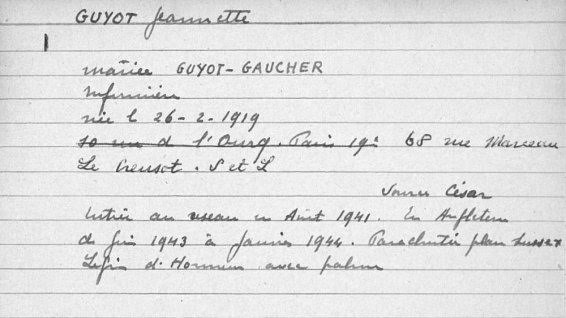 GUYOT Jeannette
mariée GUYOT-GAUCHER
Infirmière
née le 26-2-1919
de l'Ourcq. Paris 19e 68 rue Marceau
Le Creusot. S et L
Source César
Entrée au réseau en Août 1941. En Angleterre
de fin 1943 à Janvier 1944. Parachutée plan Sussex
Légion d'Honneur avec palme